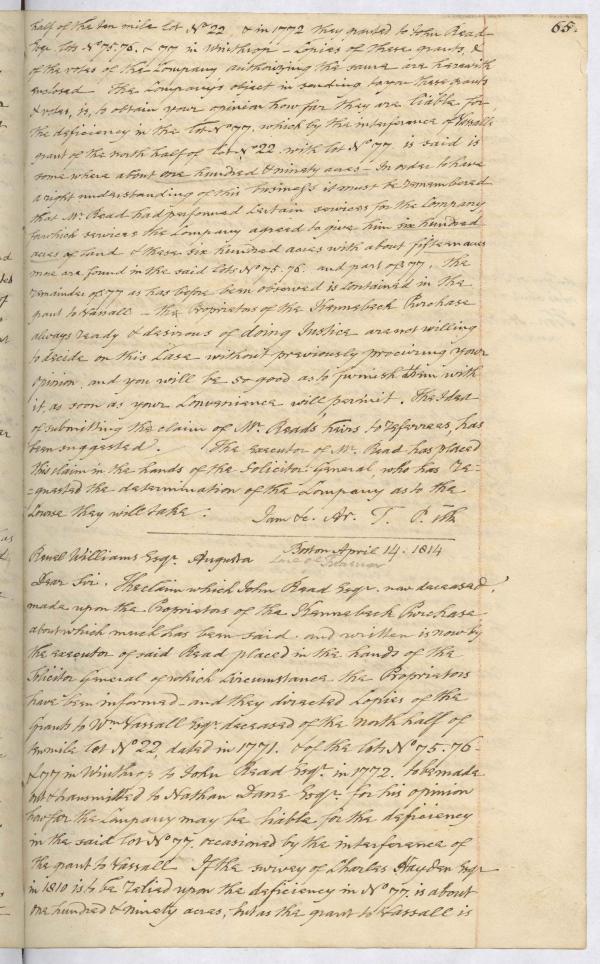 65.
half of the ten mile lot No. 22, & in 1772 they granted to John Read
Esqr. lots No. 75. 76. & 77 in Winthrop - Copies of these grants, &
of the votes of the Company authorizing the same are herewith
enclosed. The Company's object in sending to you these grants
& votes, is, to obtain your opinion how far they are liable for
the deficiency in the lot No. 77, which by the interference of Vassalls
grant of the north half of lot No. 22. with lot No. 77. is said is
some where about one hundred & ninety acres - In order to have
a right understanding of this business it must be remembered
that Mr. Read had performed certain services for the Company
for which services the Company agreed to give him six hundred
acres of land & these six hundred acres with about fifteen acres
more are found in the said lots No. 75. 76. and part of 77, The
remainder of 77 as has before been observed is contained in the
grant to Vassall - The Proprietors of the Kennebeck Purchase
always ready & desirous of doing Justice are not willing
to decide on this Case without previously procuring your
opinion, and you will be so good as to furnish them with
it, as soon as your Convenience will permit. The Idea
of submitting the claim of Mr. Reads heirs to referrees, has
been suggested. The executor of Mr. Read has placed
this claim in the hands of the Solicitor General, who has re=
=quested the determination of the Company as to the
Course they will take. I am &c. Ar. T. P. Kk
Boston April 14. 1814
Ruel Williams Esqr. Augusta
Dear Sir. The claim which John Read Esqr. now deceased,
made upon the Proprietors of the Kennebeck Purchase
about which much has been said and written is now by
the executor of said Read placed in the hands of the
Solicitor General of which Circumstance the Proprietors
have been informed and they directed Copies of the
Grants to Wm Vassall Esqr. deceased of the north half of
ten mile lot No. 22, dated in 1771. & of the lots No. 75. 76 -
& 77 in Winthrop to John Read Esqr. in 1772. to be made
out & transmitted to Nathan Dane Esqr. for his opinion
how far the Company may be liable for the deficiency
in the said lot No. 77. occasioned by the interference of
the grant to Vassall If the survey of Charles Hayden Esqr
in 1810 is to be relied upon the deficiency in No. 77. is about
one hundred & ninety acres, but as the grant to Vassall is